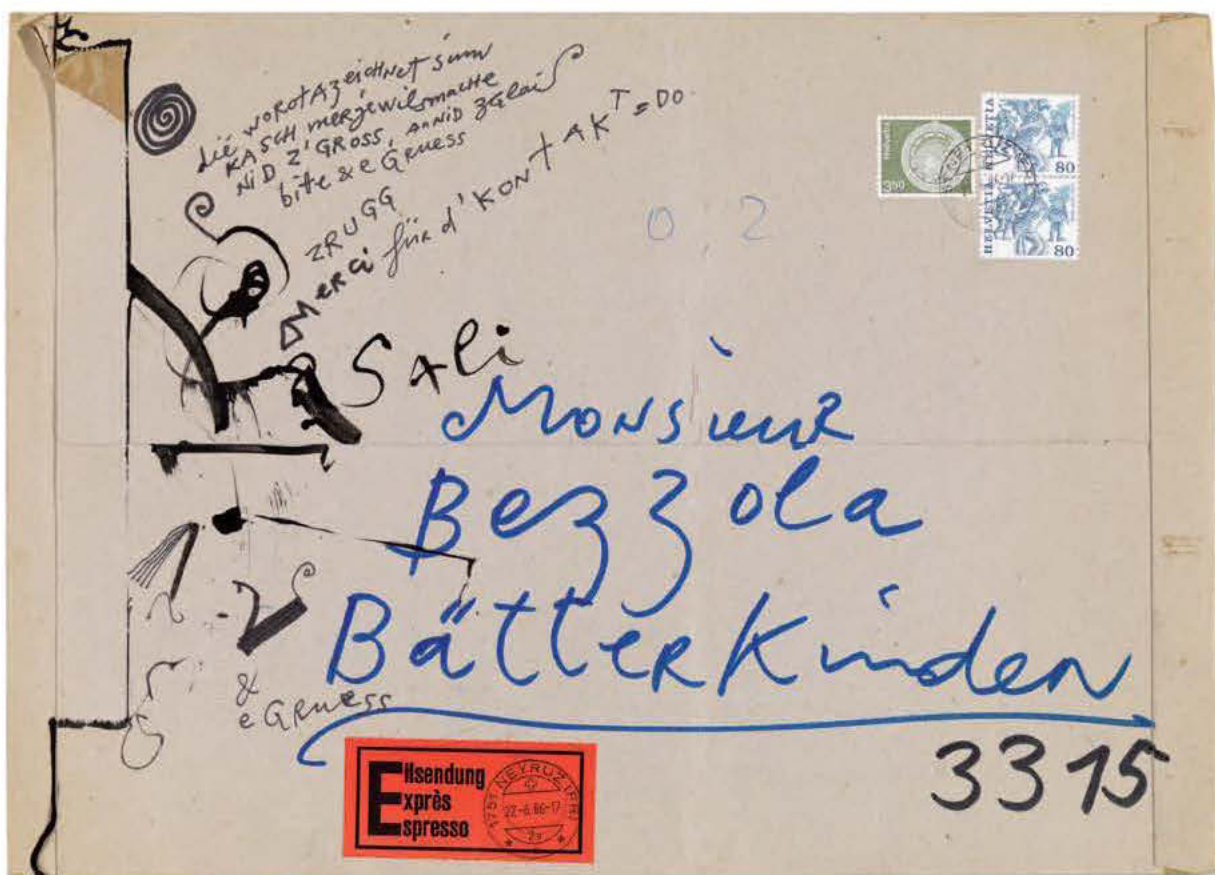 die wo rot AzeicHNet sinn
KASCH mer gewilsmache
NiD Z'GROSS, ANNiD ZGlai
bitte & e GRuess
ZRUGG
MeRci füR d' KONTAKT = DO
0,2
Helvetia
350
HELVETIA
80
HELVETIA
80
SAli
Monsieur
Bezzola
BätterKinden
& e GRuess
3315
Eilsendung
Exprès
Espresso
1751 NEYRUZ (FR)
22-6.86-17